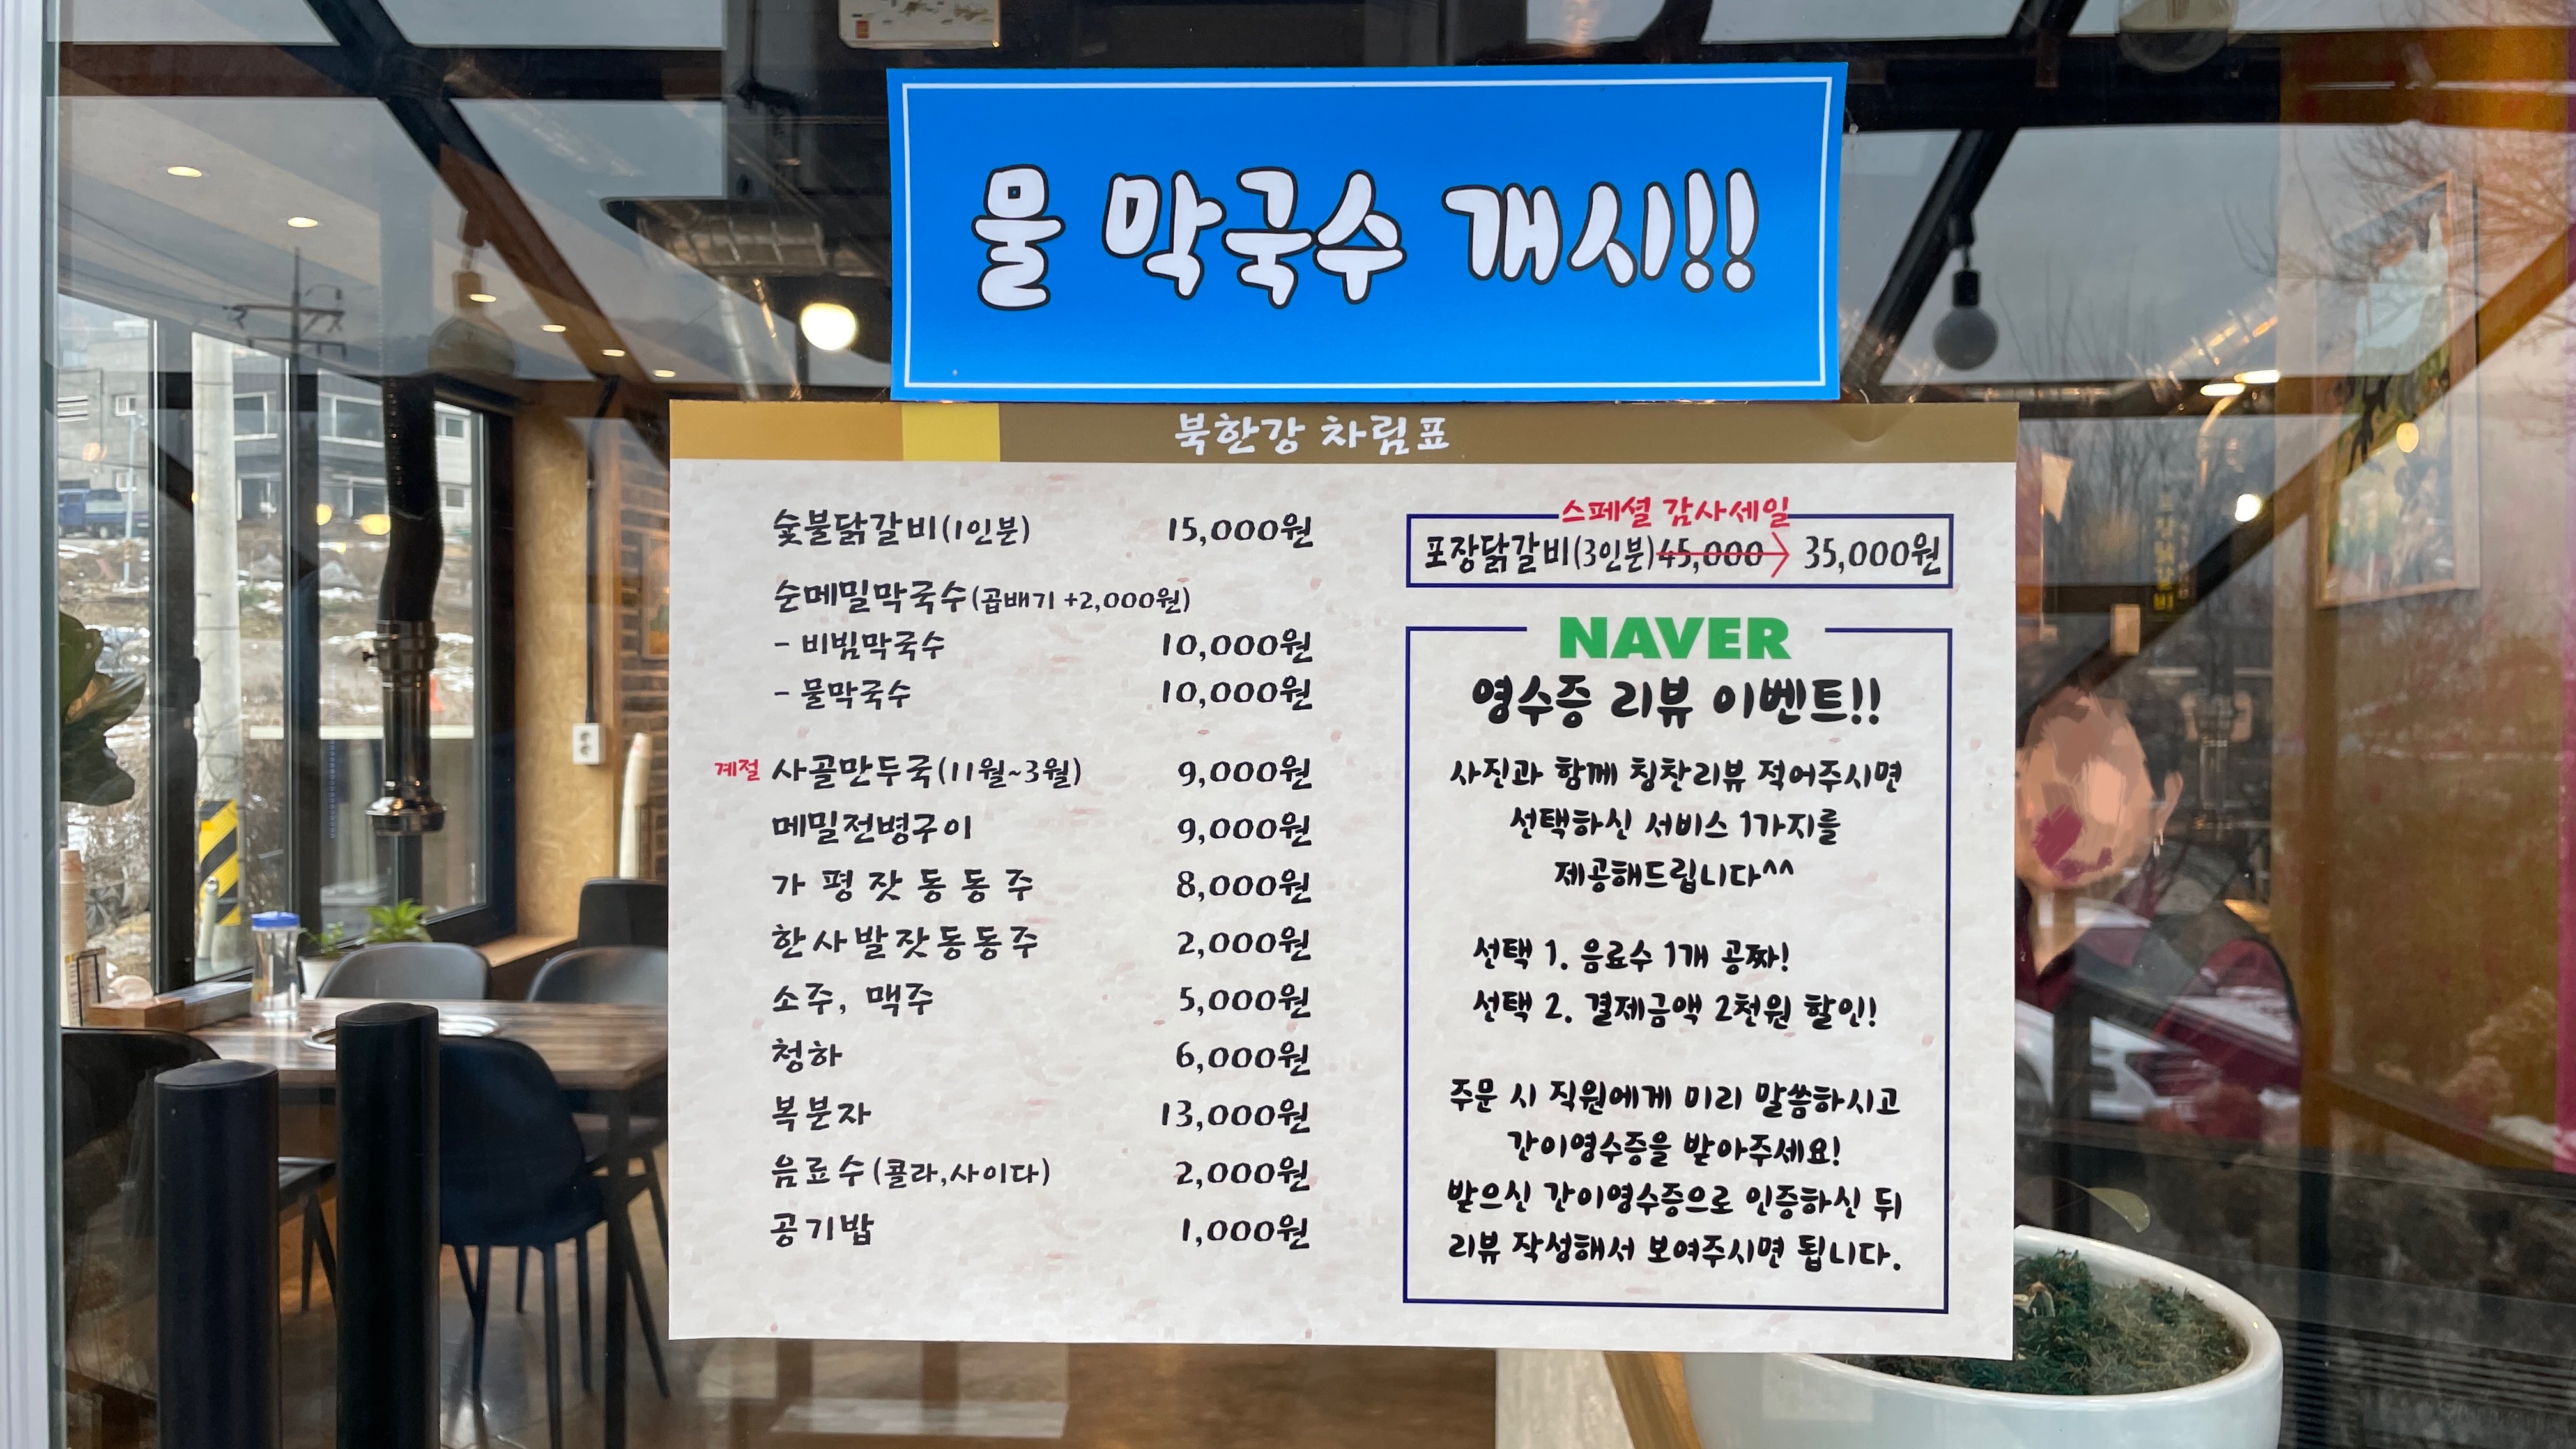 물 막국수 개시!!
북한강 차림표
숯불닭갈비(1인분) 15,000원
순메밀막국수(곱배기 +2,000원)
- 비빔막국수 10,000원
- 물막국수 10,000원
계절 사골만두국(11월~3월) 9,000원
메밀전병구이 9,000원
가평잣동동주 8,000원
한사발잣동동주 2,000원
소주, 맥주 5,000원
청하 6,000원
복분자 13,000원
음료수(콜라,사이다) 2,000원
공기밥 1,000원
스페셜 감사세일
포장닭갈비(3인분) 45,000 > 35,000원
NAVER
영수증 리뷰 이벤트!!
사진과 함께 칭찬리뷰 적어주시면
선택하신 서비스 1가지를
제공해드립니다^^
선택 1. 음료수 1개 공짜!
선택 2. 결제금액 2천원 할인!
주문 시 직원에게 미리 말씀하시고
간이영수증을 받아주세요!
받으신 간이영수증으로 인증하신 뒤
리뷰 작성해서 보여주시면 됩니다.